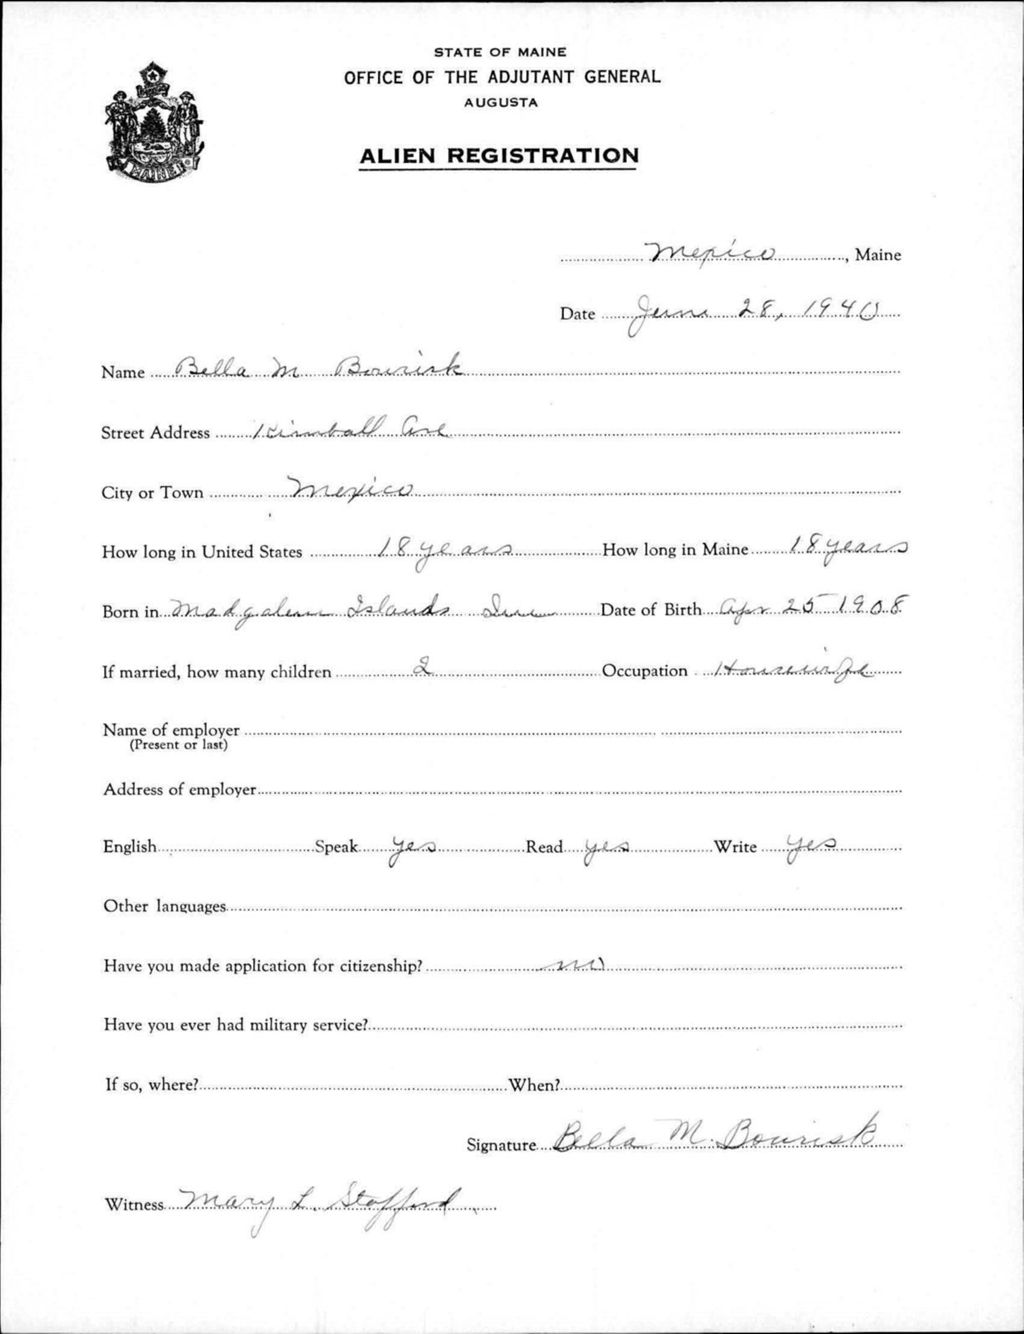 STATE OF MAINE
OFFICE OF THE ADJUTANT GENERAL
AUGUSTA
ALIEN REGISTRATION
Mexico, Maine
Date June 28, 1940
Name Bella M Bourisk
Street Address Kimball Ave
City or Town Mexico
How long in United States 18 years How long in Maine 18 years
Born in Madgalene Islands Date of Birth Apr 25 1908
If married, how many children 2 Occupation Housewife
Name of employer
(Present or last)
Address of employer
English Speak yes Read yes Write yes
Other languages
Have you made application for citizenship? no
Have you ever had military service?
If so, where? When?
Signature Bella M. Bourisk
Witness Mary L. Stafford